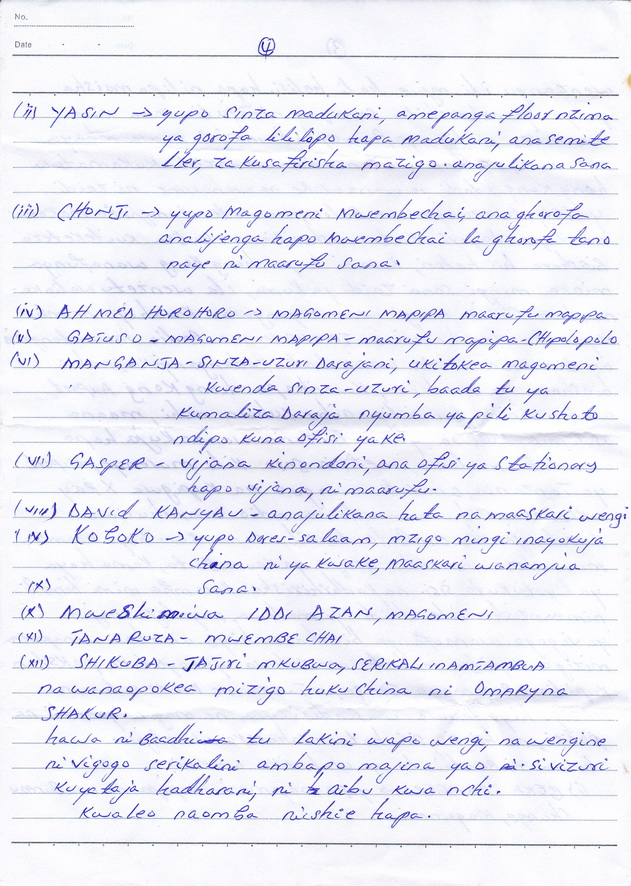 No.
Date
4
(ii) YASIN → yupo Sinza madukani, amepanga floor nzima
ya gorofa lililopo hapa madukani, anasemite
ller, za kusafirisha mazigo. anajulikana sana
(iii) CHONJI → yupo Magomeni Mwembechai, ana ghorofa
analijenga hapo Mwembechai la ghorofa tano
naye ni maarufu sana.
(iv) AHMED HOROHORO → MAGOMENI MAPIPA maarufu mapipa
(v) GATUSO - MAGOMENI MAPIPA - maarufu mapipa - CHIPOLOPOLO
(vi) MANGANJA - SINZA - UZURI Darajani, ukitokea magomeni
kwenda sinza - uzuri, baada tu ya
kumaliza Daraja nyumba ya pili kushoto
ndipo kuna ofisi yake
(vii) GASPER - vijana kinondoni, ana ofisi ya stationary
hapo vijana, ni maarufu.
(viii) DAVID KANYAU - anajulikana hata na maaskari wengi
(ix) KOBOKO → yupo Dar es-salaam, mzigo mingi inayokuja
china ni ya kwake, maaskari wanamjua
(x) sana.
(x) Mweshimiwa IDDI AZAN, MAGOMENI
(xi) TANARUZA - MWEMBE CHAI
(xii) SHIKUBA - TAJIRI mkubwa, SERIKALI INAMTAMBUA
na wanaopokea mizigo huku China ni OMARY na
SHAKUR.
hawa ni Baadhi tu lakini wapo wengi, na wengine
ni vigogo serikalini ambapo majina yao si vizuri
kuyataja hadharani, ni aibu kwa nchi.
Kwa leo naomba niishie hapa.